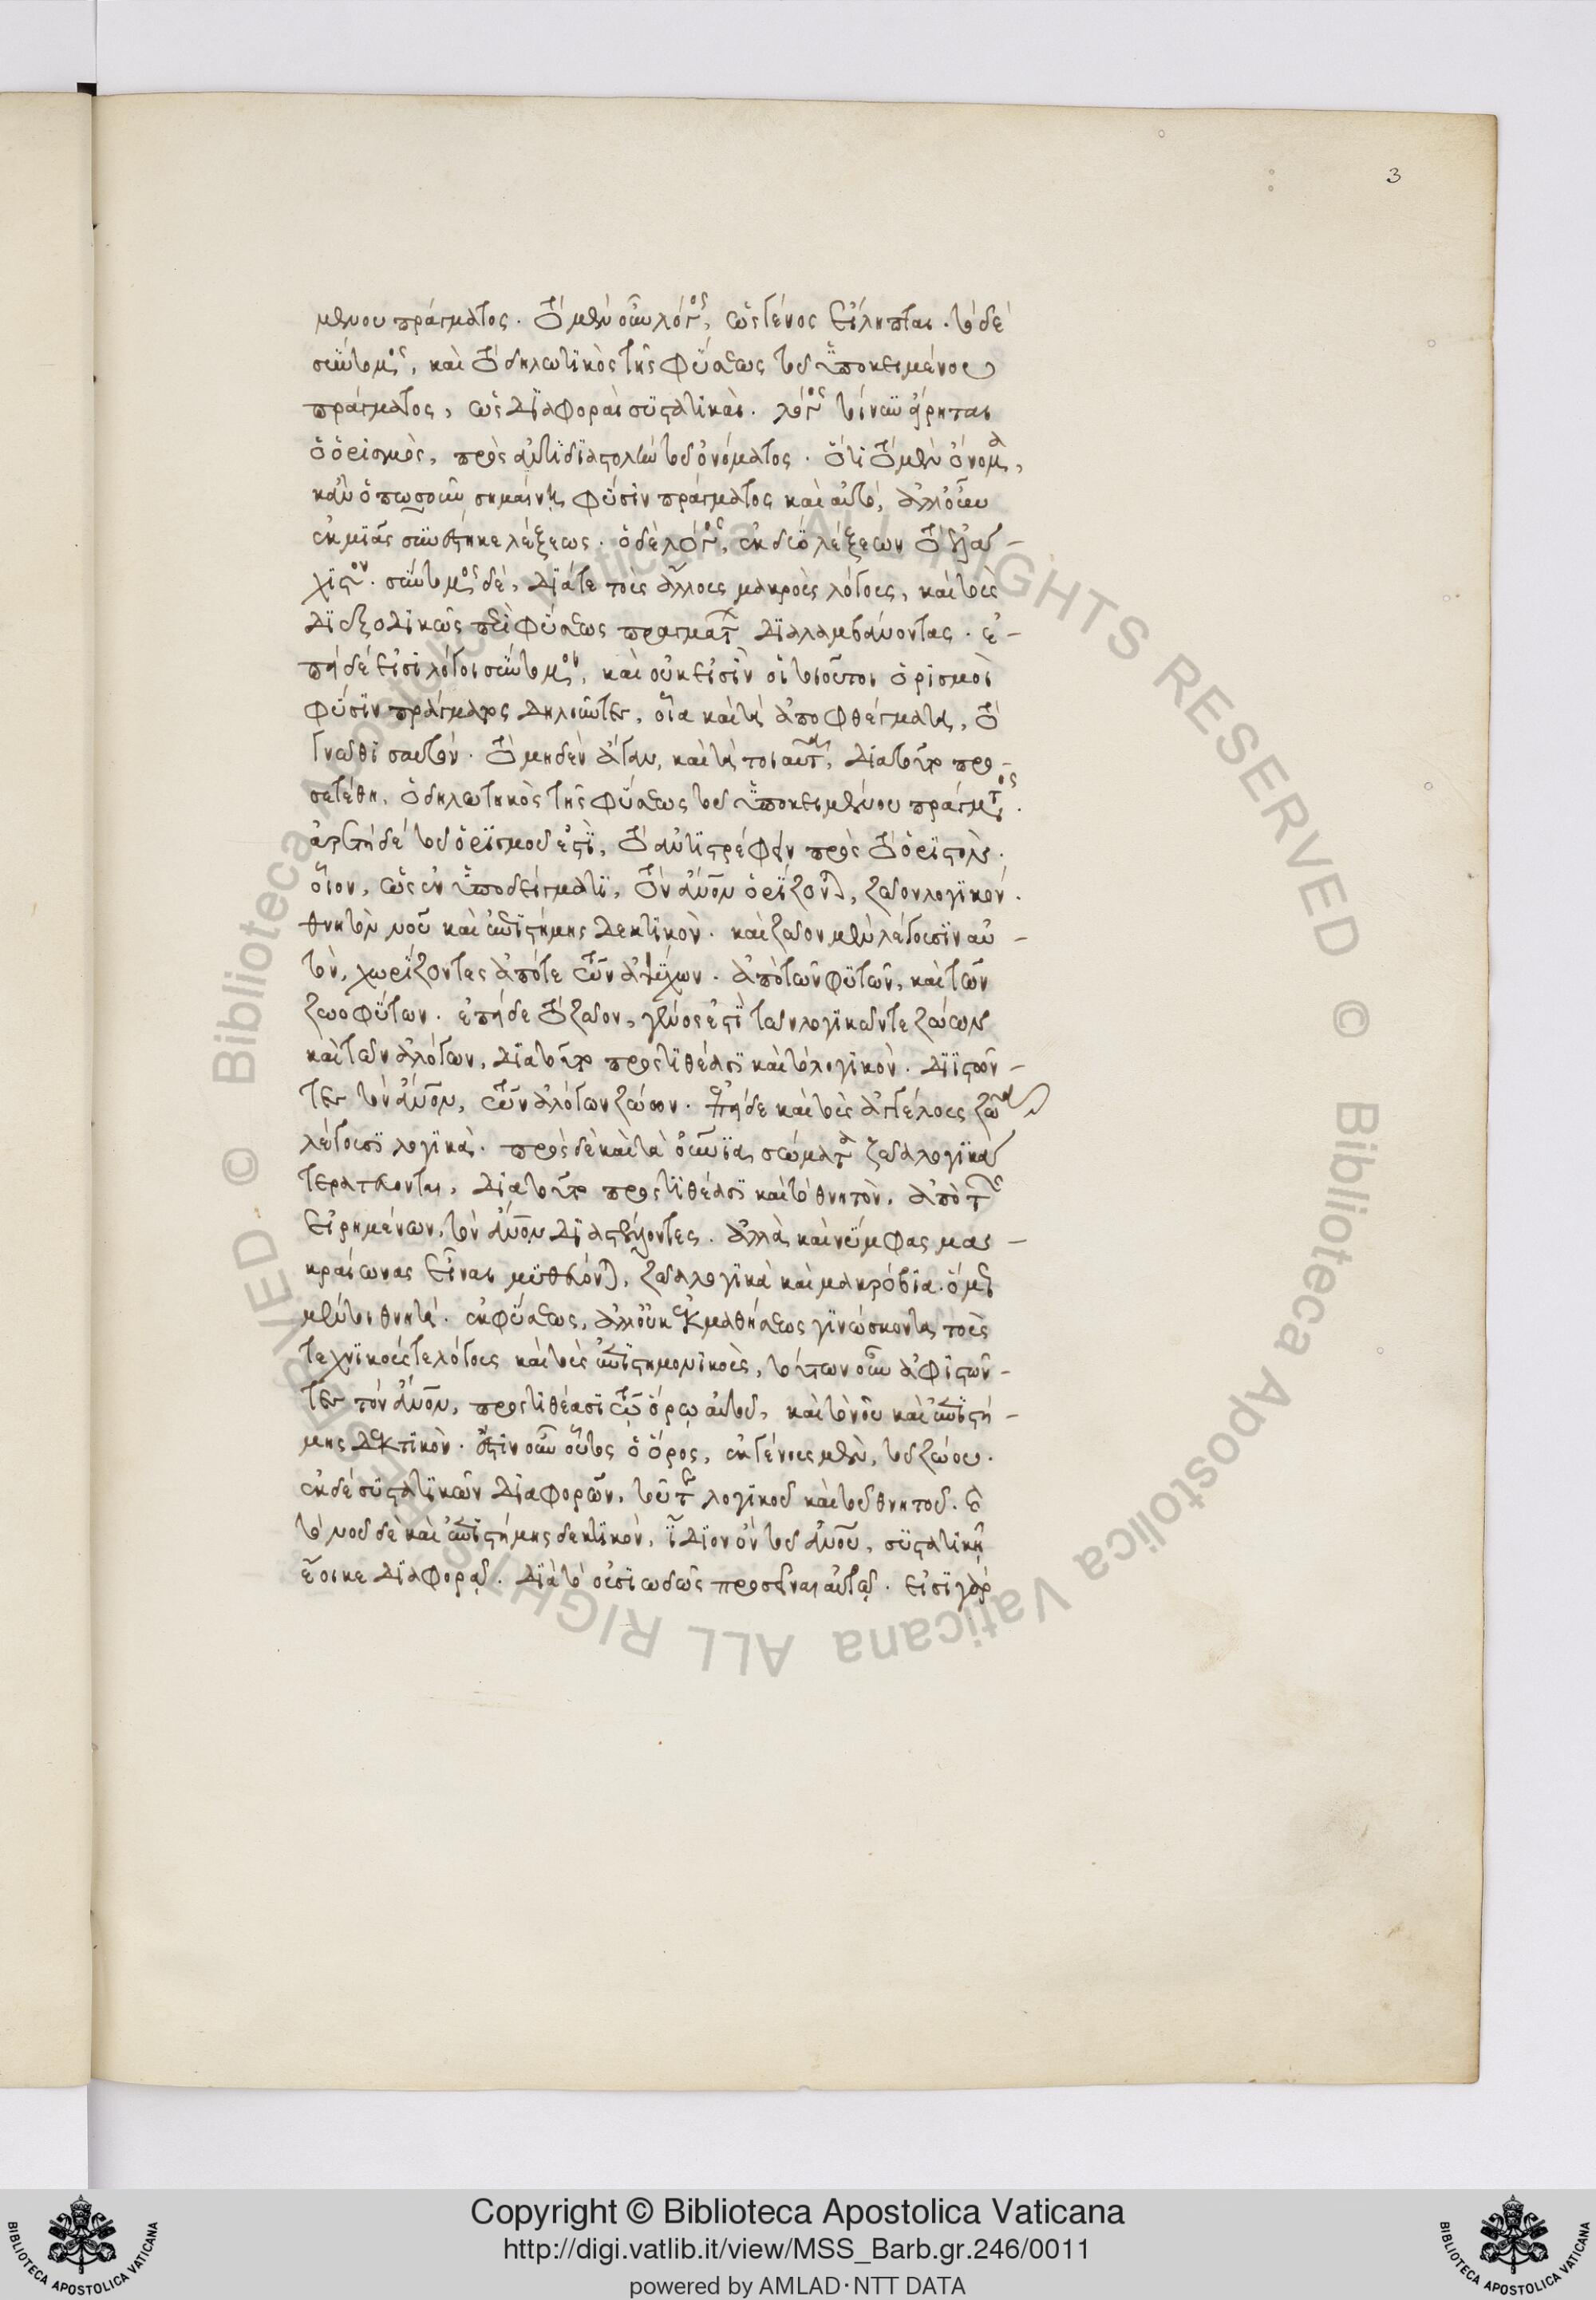 3
μένου πράγματος. τὸ μὲν οὖν λόγος, ὡς γένος εἴληπται. τὸ δὲ
σύντομος, καὶ τὸ δηλωτικὸς τῆς φύσεως τοῦ ὑποκειμένου
πράγματος, ὡς διαφοραὶ συστατικαί. λόγος τοίνυν εἴρηται
ὁ ὁρισμὸς, πρὸς ἀντιδιαστολὴν τοῦ ὀνόματος. ὅτι τὸ μὲν ὄνομα,
κἂν ὁπωσοῦν σημαίνη φύσιν πράγματος καὶ αὐτό, ἀλλ' οὖν
ἐκ μιᾶς συνέστηκε λέξεως. ὁ δὲ λόγος, ἐκ δύο λέξεων τὸ ἐλά-
χιστον. σύντομος δὲ, διά τε τοὺς ἄλλους μακροὺς λόγους, καὶ τοὺς
διεξοδικῶς περὶ φύσεως πραγμάτων διαλαμβάνοντας. ἐ-
πεὶ δέ εἰσι λόγοι σύντομοι, καὶ οὐκ εἰσὶν οἱ τοιοῦτοι ὁρισμοὶ
φύσιν πράγματος δηλοῦντες, οἷα καὶ τὰ ἀποφθέγματα, τὸ
γνῶθι σαυτόν. τὸ μηδὲν ἄγαν, καὶ τὰ τοιαῦτα, διὰ τοῦτο προ-
σετέθη, ὁ δηλωτηκὸς τῆς φύσεως τοῦ ὑποκειμένου πράγματος.
ἀρετὴ δὲ τοῦ ὁρισμοῦ ἐστὶ, τὸ ἀντιστρέφειν πρὸς τὸ ὁριστόν.
οἷον, ὡς ἐν ὑποδείγματι, τὸν ἄνον ὁρίζονται, ζῶον λογικόν.
θνητὸν νοῦ καὶ ἐπιστήμης δεκτικὸν. καὶ ζῶον μὲν λέγουσιν αὐ-
τὸν, χωρίζοντες ἀπό τε τῶν ἀψύχων. ἀπὸ τῶν φυτῶν, καὶ τῶν
ζωοφύτων. ἐπεὶ δε τὸ ζῶον, γένος ἐστὶ τῶν λογικῶν τε ζώων
καὶ τῶν ἀλόγων, διὰ τοῦτο προστιθέασι καὶ τὸ λογικὸν. διϊστῶν-
τες τὸν ἄνον, τῶν ἀλόγων ζώων. ἐπεὶ δε καὶ τοὺς ἀγγέλους ζῶα
λέγουσι λογικὰ. πρὸς δὲ καὶ τὰ οὐράνια σώματα ζῶα λογικὰ
τερατεύονται, διὰ τοῦτο προστιθέασι καὶ τὸ θνητὸν. ἀπὸ τῶν
εἰρημένων, τὸν ἄνον διαστέλλοντες. ἀλλὰ καὶ νύμφας μα-
κραίωνας εἶναι μυθεύονται, ζῶα λογικὰ καὶ μακρόβια. ὅμως
μέντοι θνητὰ. ἐκ φύσεως, ἀλλ' οὐκ ἐκ μαθήσεως γινώσκοντα τοὺς
τεχνικούς τε λόγους καὶ τοὺς ἐπιστημονικοὺς, τούτων οὖν ἀφιστῶν-
τες τὸν ἄνον, προστιθέασι τῷ ὅρῳ αὐτοῦ, καὶ τὸ νοῦ καὶ ἐπιστή-
μης δεκτικὸν. ἔστιν οὖν οὗτος ὁ ὅρος, ἐκ γένους μὲν, τοῦ ζώου.
ἐκ δὲ συστατικῶν διαφορῶν, τοῦ τε λογικοῦ καὶ τοῦ θνητοῦ. καὶ
τὸ νοῦ δὲ καὶ ἐπιστήμης δεκτικὸν, ἴδιον ὂν τοῦ ἄνου, συστατικῇ
ἔοικε διαφορᾷ. διὰ τὸ οὐσιωδῶς προσεῖναι αὐτῷ. εἰσὶ γὰρ
Copyright © Biblioteca Apostolica Vaticana
http://digi.vatlib.it/view/MSS_Barb.gr.246/0011
powered by AMLAD·NTT DATA